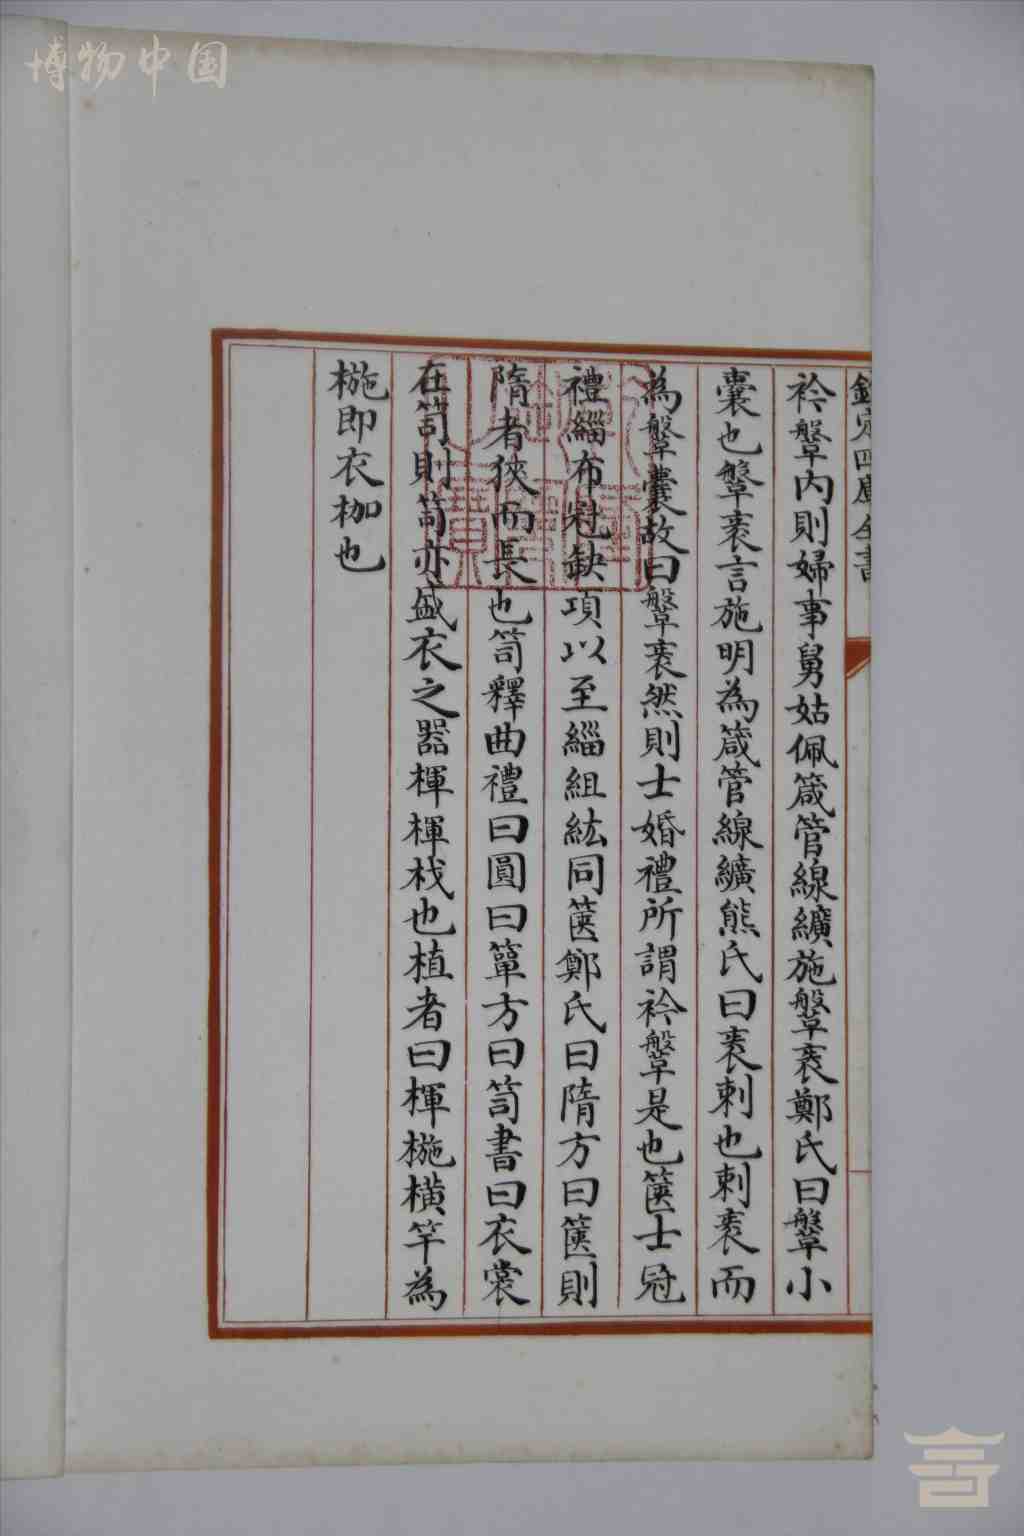 博物中国
欽定四庫全書
衿鞶内則婦事舅姑佩箴管線纊施鞶袠鄭氏曰鞶小
囊也鞶袠言施明為箴管線纊熊氏曰袠刺也刺袠而
為鞶囊故曰鞶袠然則士婚禮所謂衿鞶是也篋士冠
禮緇布冠缺項以至緇組紘同篋鄭氏曰隋方曰篋則
隋者狹而長也笥釋曲禮曰圓曰簞方曰笥書曰衣裳
在笥則笥亦盛衣之器楎楎杙也植者曰楎椸橫竿為
椸即衣枷也